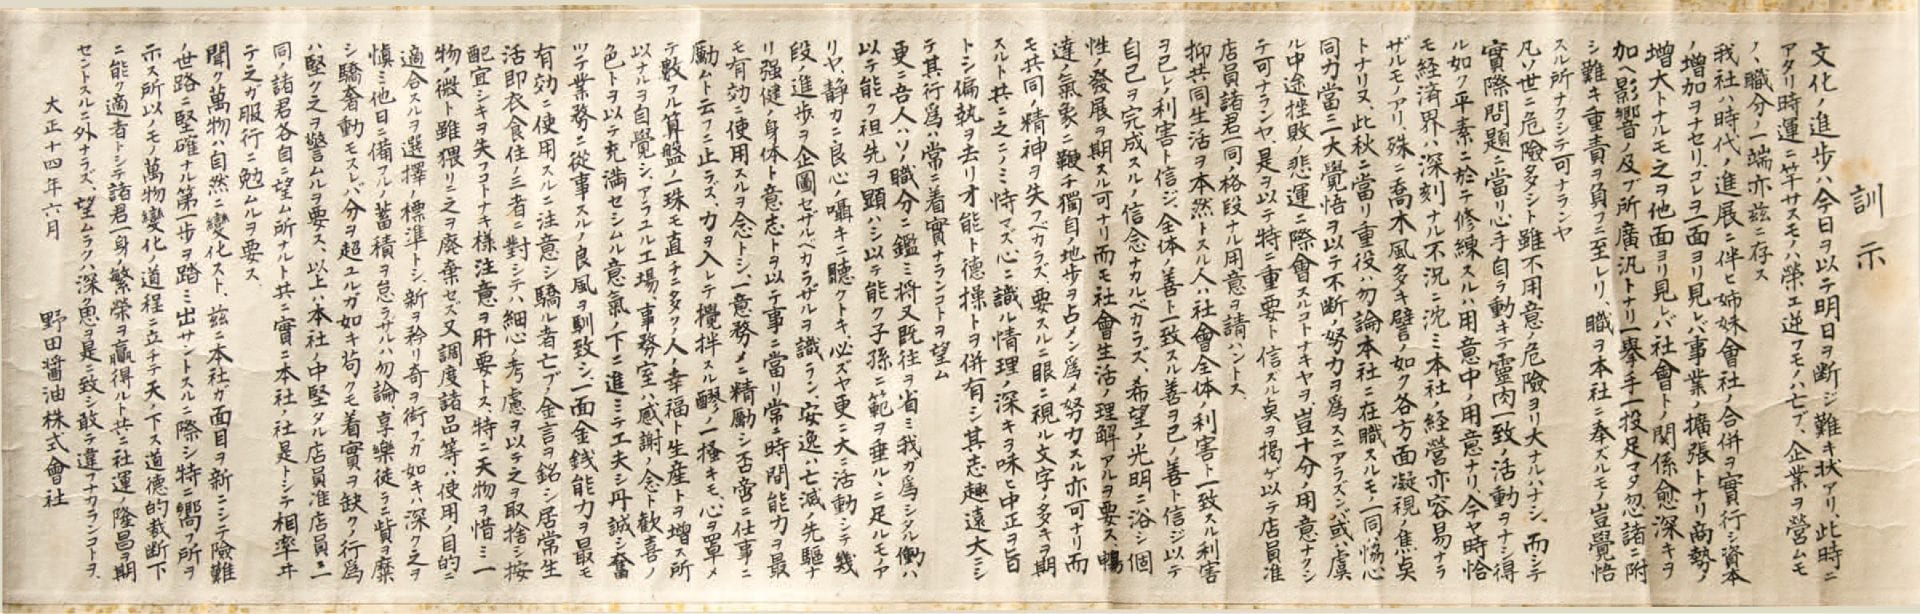 訓示
文化ノ進歩ハ今日ヲ以テ明日ヲ断ジ難キ状アリ、此時ニ
アタリ時運ニ竿サスモノハ榮エ逆フモノハ亡フ、企業ヲ營ムモ
ノヽ職分ノ一端亦茲ニ存ス
我社ハ時代ノ進展ニ伴ヒ姉妹會社ノ合併ヲ實行シ資本
ノ増加ヲナセリ、コレヲ一面ヨリ見レバ事業ノ擴張トナリ商勢ノ
増大トナルモ之ヲ他面ヨリ見レバ社會トノ関係愈深キヲ
加ヘ影響ノ及ブ所廣汎トナリ一擧手一投足マタ忽諸ニ附
シ難キ重責ヲ負フニ至レリ、職ヲ本社ニ奉ズルモノ豈覺悟
スル所ナクシテ可ナランヤ
凡ソ世ニ危險多シト雖不用意ノ危險ヨリ大ナルハナシ、而シテ
實際問題ニ當リ心手自ラ動キテ靈肉一致ノ活動ヲナシ得
ル如ク平素ニ於テ修練スルハ用意中ノ用意ナリ、今ヤ時恰
モ経済界ハ深刻ナル不況ニ沈ミ本社ノ経營亦容易ナラ
ザルモノアリ、殊ニ喬木風多キ譬ノ如ク各方面凝視ノ焦点
トナリヌ、此秋ニ當リ重役ハ勿論本社ニ在職スルモノ一同協心
同力當ニ一大覺悟ヲ以テ不断ノ努力ヲ爲スニアラズンバ或ハ虞
ル中途挫敗ノ悲運ニ際會スルコトナキヤヲ豈十分ノ用意ナクシ
テ可ナランヤ、是ヲ以テ特ニ重要ト信スル点ヲ掲ゲ以テ店員准
店員諸君一同ノ格段ナル用意ヲ請ハントス
抑共同生活ヲ本然トスル人ハ社會全体ノ利害ト一致スル利害
ヲ己レノ利害ト信ジ、全体ノ善ト一致スル善ヲ己ノ善ト信ジ以テ
自己ヲ完成スルノ信念ナカルベカラズ、希望ノ光明ニ浴シ個
性ノ發展ヲ期スル可ナリ而モ社會生活ノ理解アルヲ要ス、
達ノ氣象ニ鞭チ獨自ノ地歩ヲ占メン爲メ努力スル亦可ナリ而
モ共同ノ精神ヲ失フベカラズ、要スルニ眼ニ視ル文字ノ多キヲ期
スルト共ニ之ニノミ恃マズ心ニ識ル情理ノ深キヲ味ヒ中正ヲ旨
トシ偏執ヲ去リオ能ト德操トヲ併有シ其志趣遠大ニシ
テ其行爲ハ常ニ着實ナランコトヲ望ム
更ニ吾人ハソノ職分ニ鑑ミ將又既往ヲ省ミ我ガ爲シタル働ハ
以テ能ク祖先ヲ顕ハシ以テ能ク子孫ニ範ヲ垂ルヽニ足ルモノア
リヤ、靜カニ良心ノ囁キニ聽クトキ、必ズヤ更ニ大ニ活動シテ幾
段ノ進歩ヲ企圖セザルベカラザルヲ識ラン、安逸ハ亡滅ノ先驅ナ
リ强健ノ身体ト意志トヲ以テ事ニ當リ常ニ時間能力ヲ最
モ有効ニ使用スルヲ念トシ、一意務メニ精勵シ否啻ニ仕事ニ
勵ムト云フニ止ラズ、力ヲ入レテ攪拌スル醪ノ一搔キモ、心ヲ罩メ
テ數フル算盤ノ一珠モ直チニ多クノ人ノ幸福ト生産トヲ增ス所
以ナルヲ自覺シ、アラユル工場事務室ハ感謝ノ念ト歓喜ノ
色トヲ以テ充滿セシムル意氣ノ下ニ進ミテ工夫シ丹誠シ奮
ツテ業務ニ從事スルノ良風ヲ馴致シ、一面金銭能力ヲ最モ
有効ニ使用スルニ注意シ驕ル者亡ブノ金言ヲ銘シ居常生
活即衣食住ノ三者ニ對シテハ細心ノ考慮ヲ以テ之ヲ取捨シ按
配宜シキヲ失フコトナキ様注意ヲ肝要トス、特ニ天物ヲ惜ミ一
物ノ微ト雖猥リニ之ヲ廃棄セズ又調度諸品等ハ使用ノ目的ニ
適合スルヲ選擇ノ標準トシ、新ヲ矜リ奇ヲ衒フガ如キハ深ク之ヲ
愼ミ他日ニ備フルノ蓄積ヲ怠ラザルハ勿論、享樂徒ラニ貲ヲ糜
シ驕奢動モスレバ分ヲ超ユルガ如キ苟クモ着實ヲ缺クノ行爲
ハ堅ク之ヲ警ムルヲ要ス、以上ハ本社ノ中堅タル店員准店員ニ
同ノ諸君各自ニ望ム所ナルト共ニ實ニ本社ノ社是トシテ相率ヰ
テ之ガ服行ニ勉ムルヲ要ス
聞ク萬物ハ自然ニ變化スト、茲ニ本社ガ面目ヲ新ニシテ險難
ノ世路ニ堅確ナル第一歩ヲ踏ミ出サントスルニ際シ特ニ嚮フ所ヲ
示ス所以ノモノ萬物變化ノ道程ニ立チテ天ノ下ス道德的裁断下
ニ能ク適者トシテ諸君一身ノ繁榮ヲ贏得ルト共ニ社運ノ隆昌ヲ期
セントスルニ外ナラズ、望ムラクハ深ク意ヲ是ニ致シ敢テ違フナカランコトヲ、
大正十四年六月
野田醤油株式會社